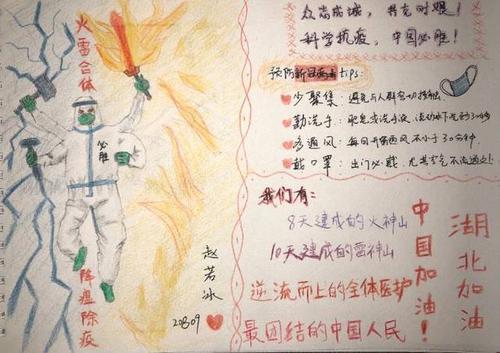 火雷合体
必胜
降瘟除疫
赵若冰
20809
众志成城，共克时艰！
科学抗疫，中国必胜！
预防新冠病毒tips：
少聚集：避免与人群密切接触
勤洗手：肥皂或洗手液，流动水下洗
多通风：每日开窗通风不小于30分钟
戴口罩：出门必戴，尤其空气不流通处！
我们有：
8天建成的火神山
10天建成的雷神山
逆流而上的全体医护
最团结的中国人民
中国加油！
湖北加油！